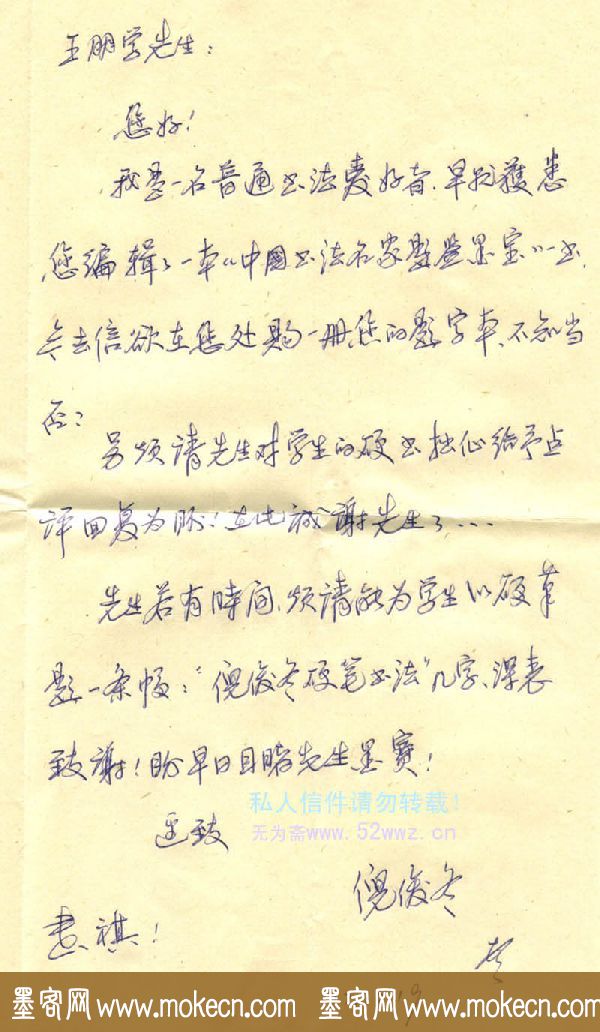 王朋学先生：
您好！
我是一名普通书法爱好者、早就獲悉
您编辑了一本《中國书法名家数签墨宝》一书，
今去信欲在您处购一册您的数字本、不知当
否？
另烦請先生对学生的硬书拙作给予点
评回复为盼！在此诚谢先生了....
先生若有時间、烦請能为学生以硬草
题一条幅："倪俊冬硬笔书法"几字、深表
致謝！盼早日目睹先生墨寶！
私人信件请勿转载！
无为斋www.52wwz.cn
遥致
倪俊冬
書祺！
墨客网www.mokecn.com 墨客网www.mokecn.com